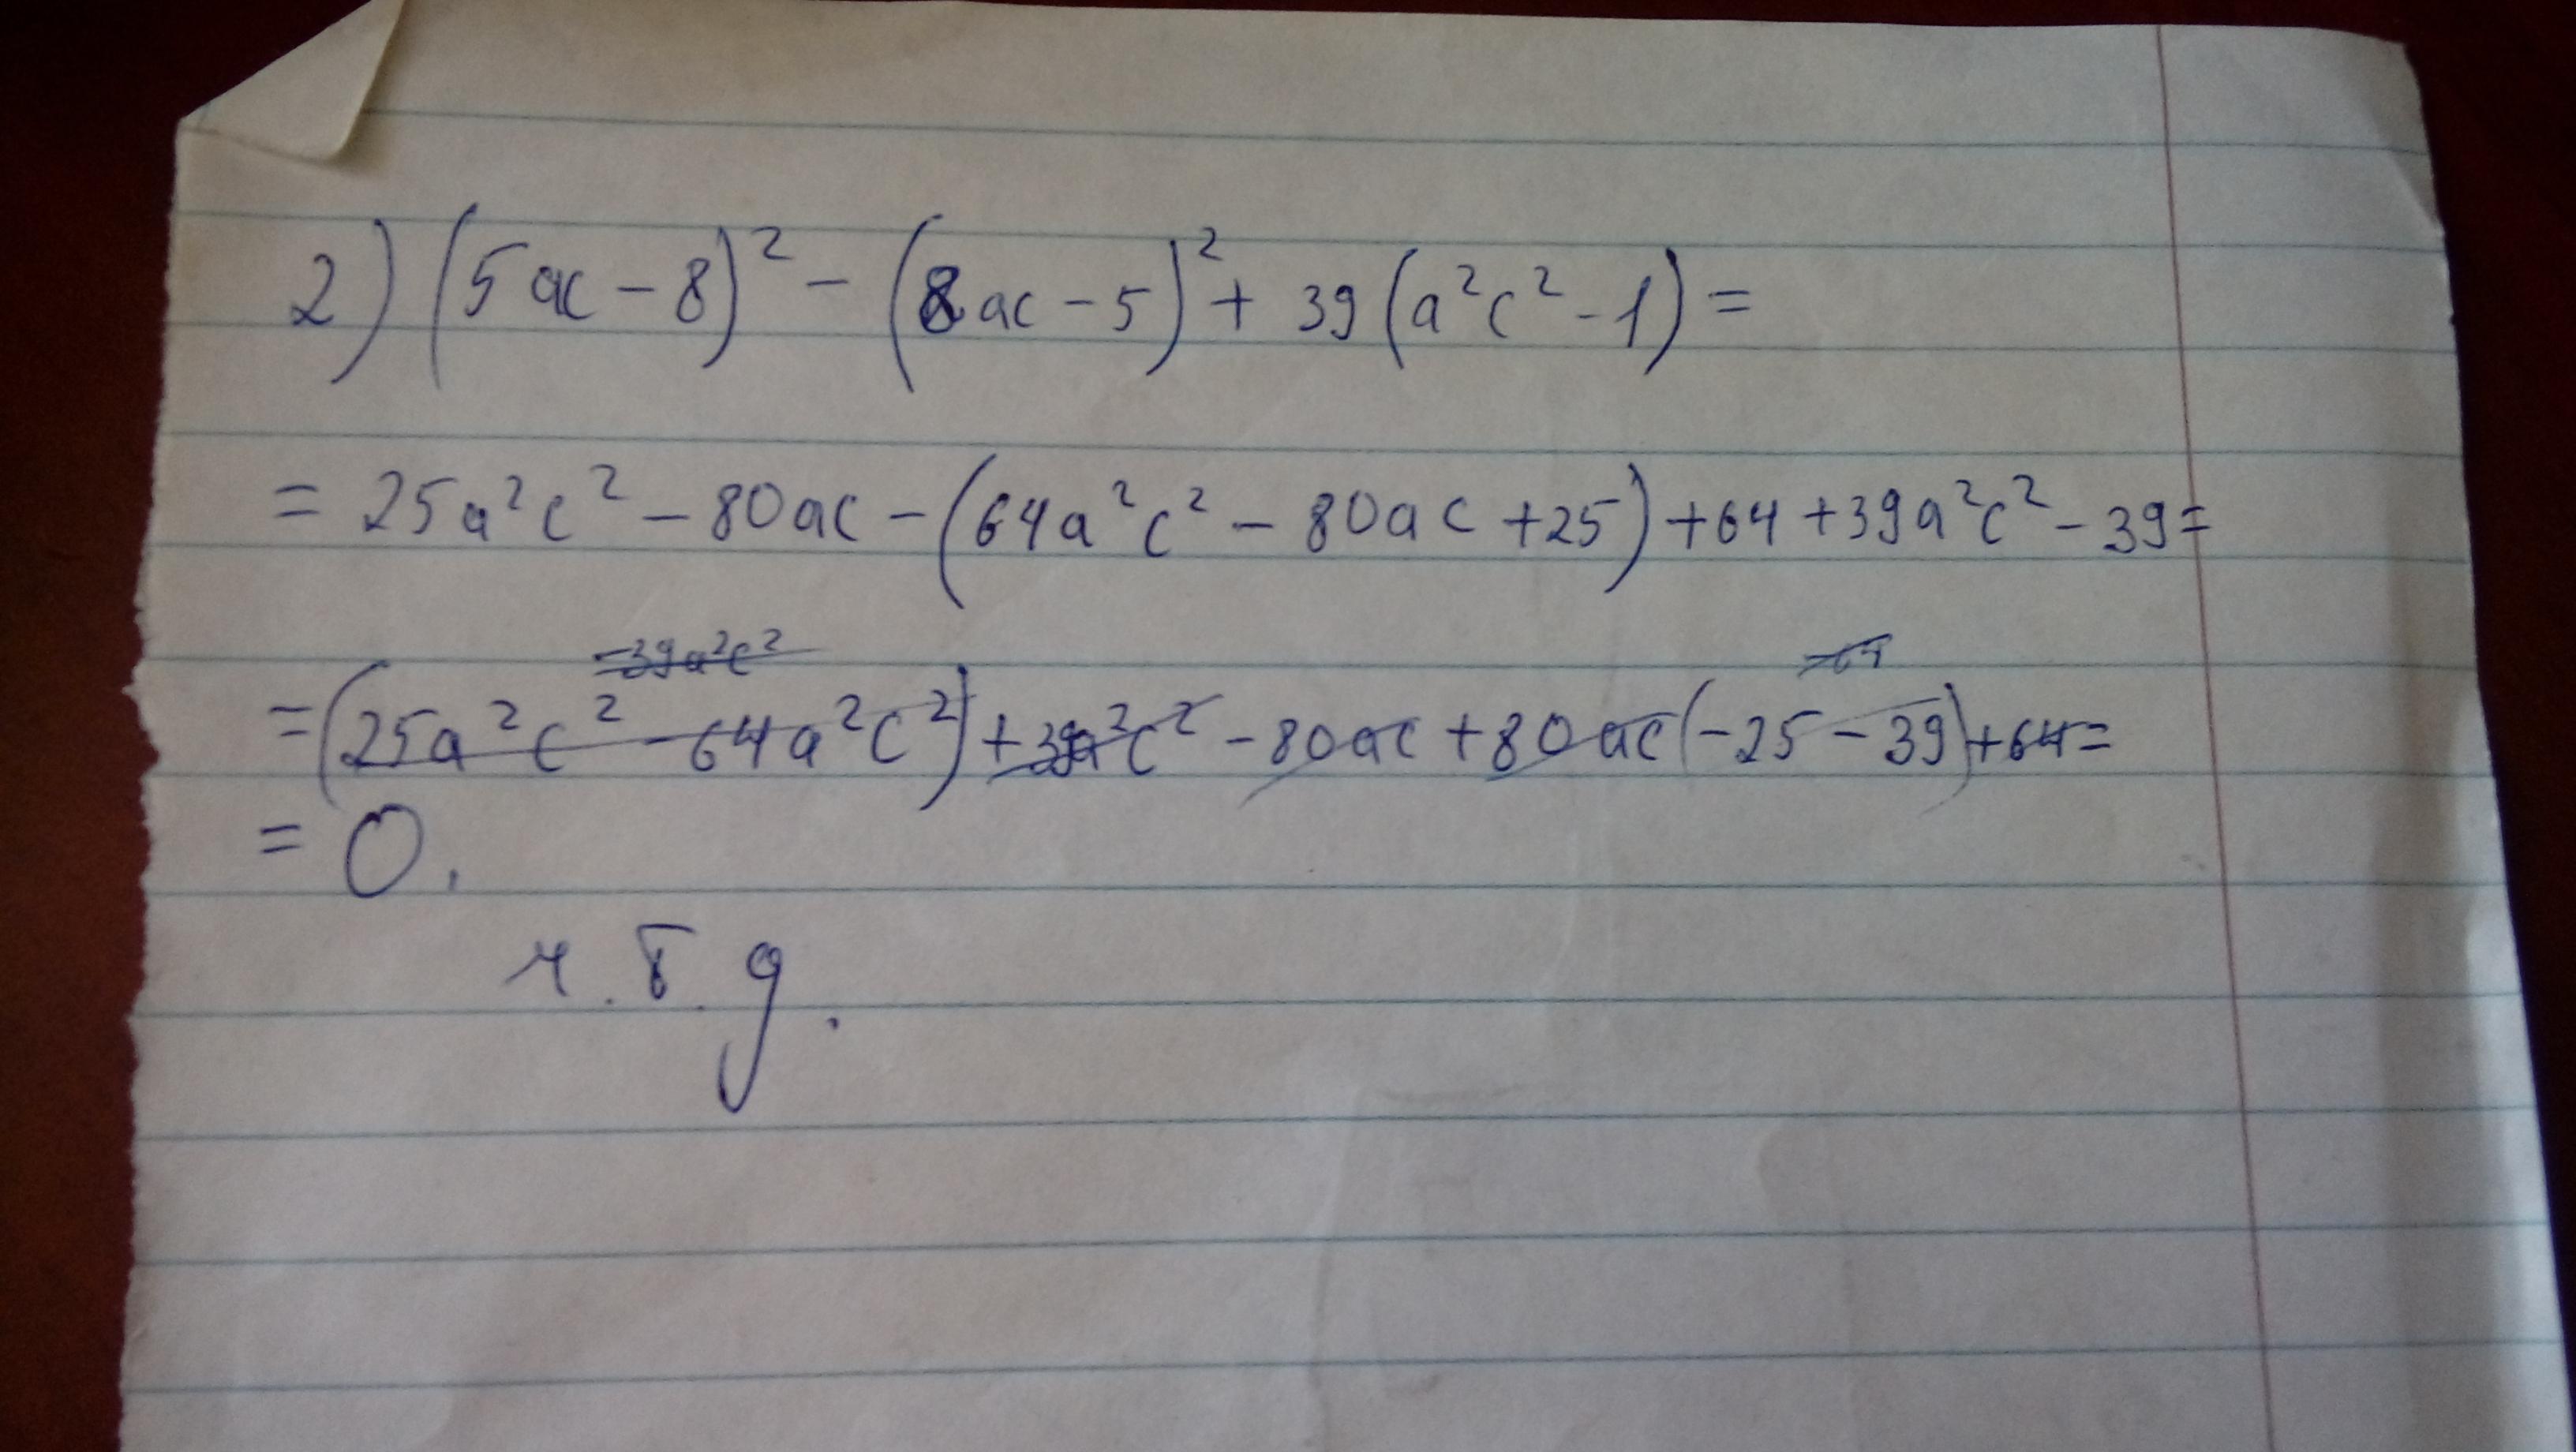 2) (5ac - 8)² - (8ac - 5)² + 39(a²c² - 1) =
= 25a²c² - 80ac - (64a²c² - 80ac + 25) + 64 + 39a²c² - 39 =
-39a²c² -64
= (25a²c² - 64a²c²) + 39a²c² - 80ac + 80ac (-25 - 39) + 64 =
= 0.
ч.т.д.